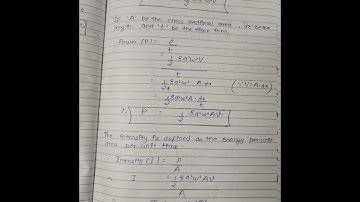 If 'A' be the cross sectional area, 'dx' be the
length and 't' be the time then,
Power (P) = E
t
= 1/2 ρa²ω²V
t
= 1/2t ρa²ω² A.dx (∵ V=A.dx)
= 1/2 ρa²ω² A.dx/t
∴ P = 1/2 ρa²ω²AV
The intensity is defined as the energy per unit
area per unit time.
∴ Intensity (I) = P
A
∴ I = 1/2 ρa²ω²AV
A